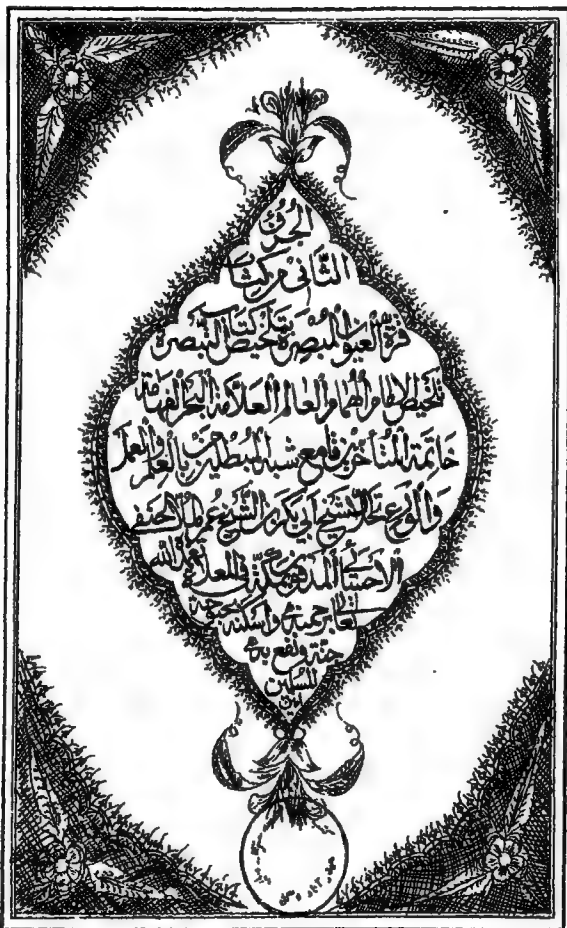 الجزء
الثاني من كتاب
قرة العيون المبصرة بتلخيص كتاب التبصرة
تلخيص الإمام الهمام العالم العلامة البحر الفهامة
خاتمة المتأخرين قامع شبه المبطلين بالعلم والعمل
والورع الشيخ أبي بكر بن الشيخ عمر الملا الحنفي
الأحسائي المدفون بمكة في المعلاة عمه الله
تعالى برحمته وأسكنه بحبوحة
جنته ونفع به
المسلمين